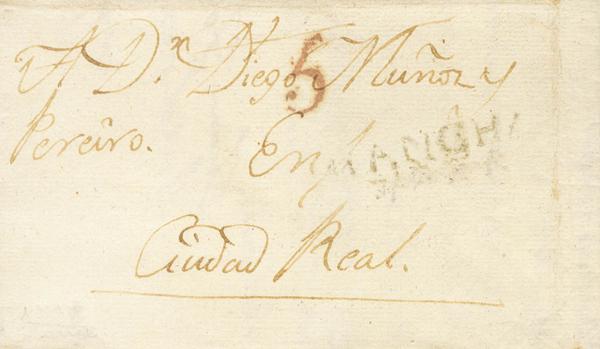 A D.n Diego Muñoz y
5
Pereiro. En
MANCHA
Ciudad Real.